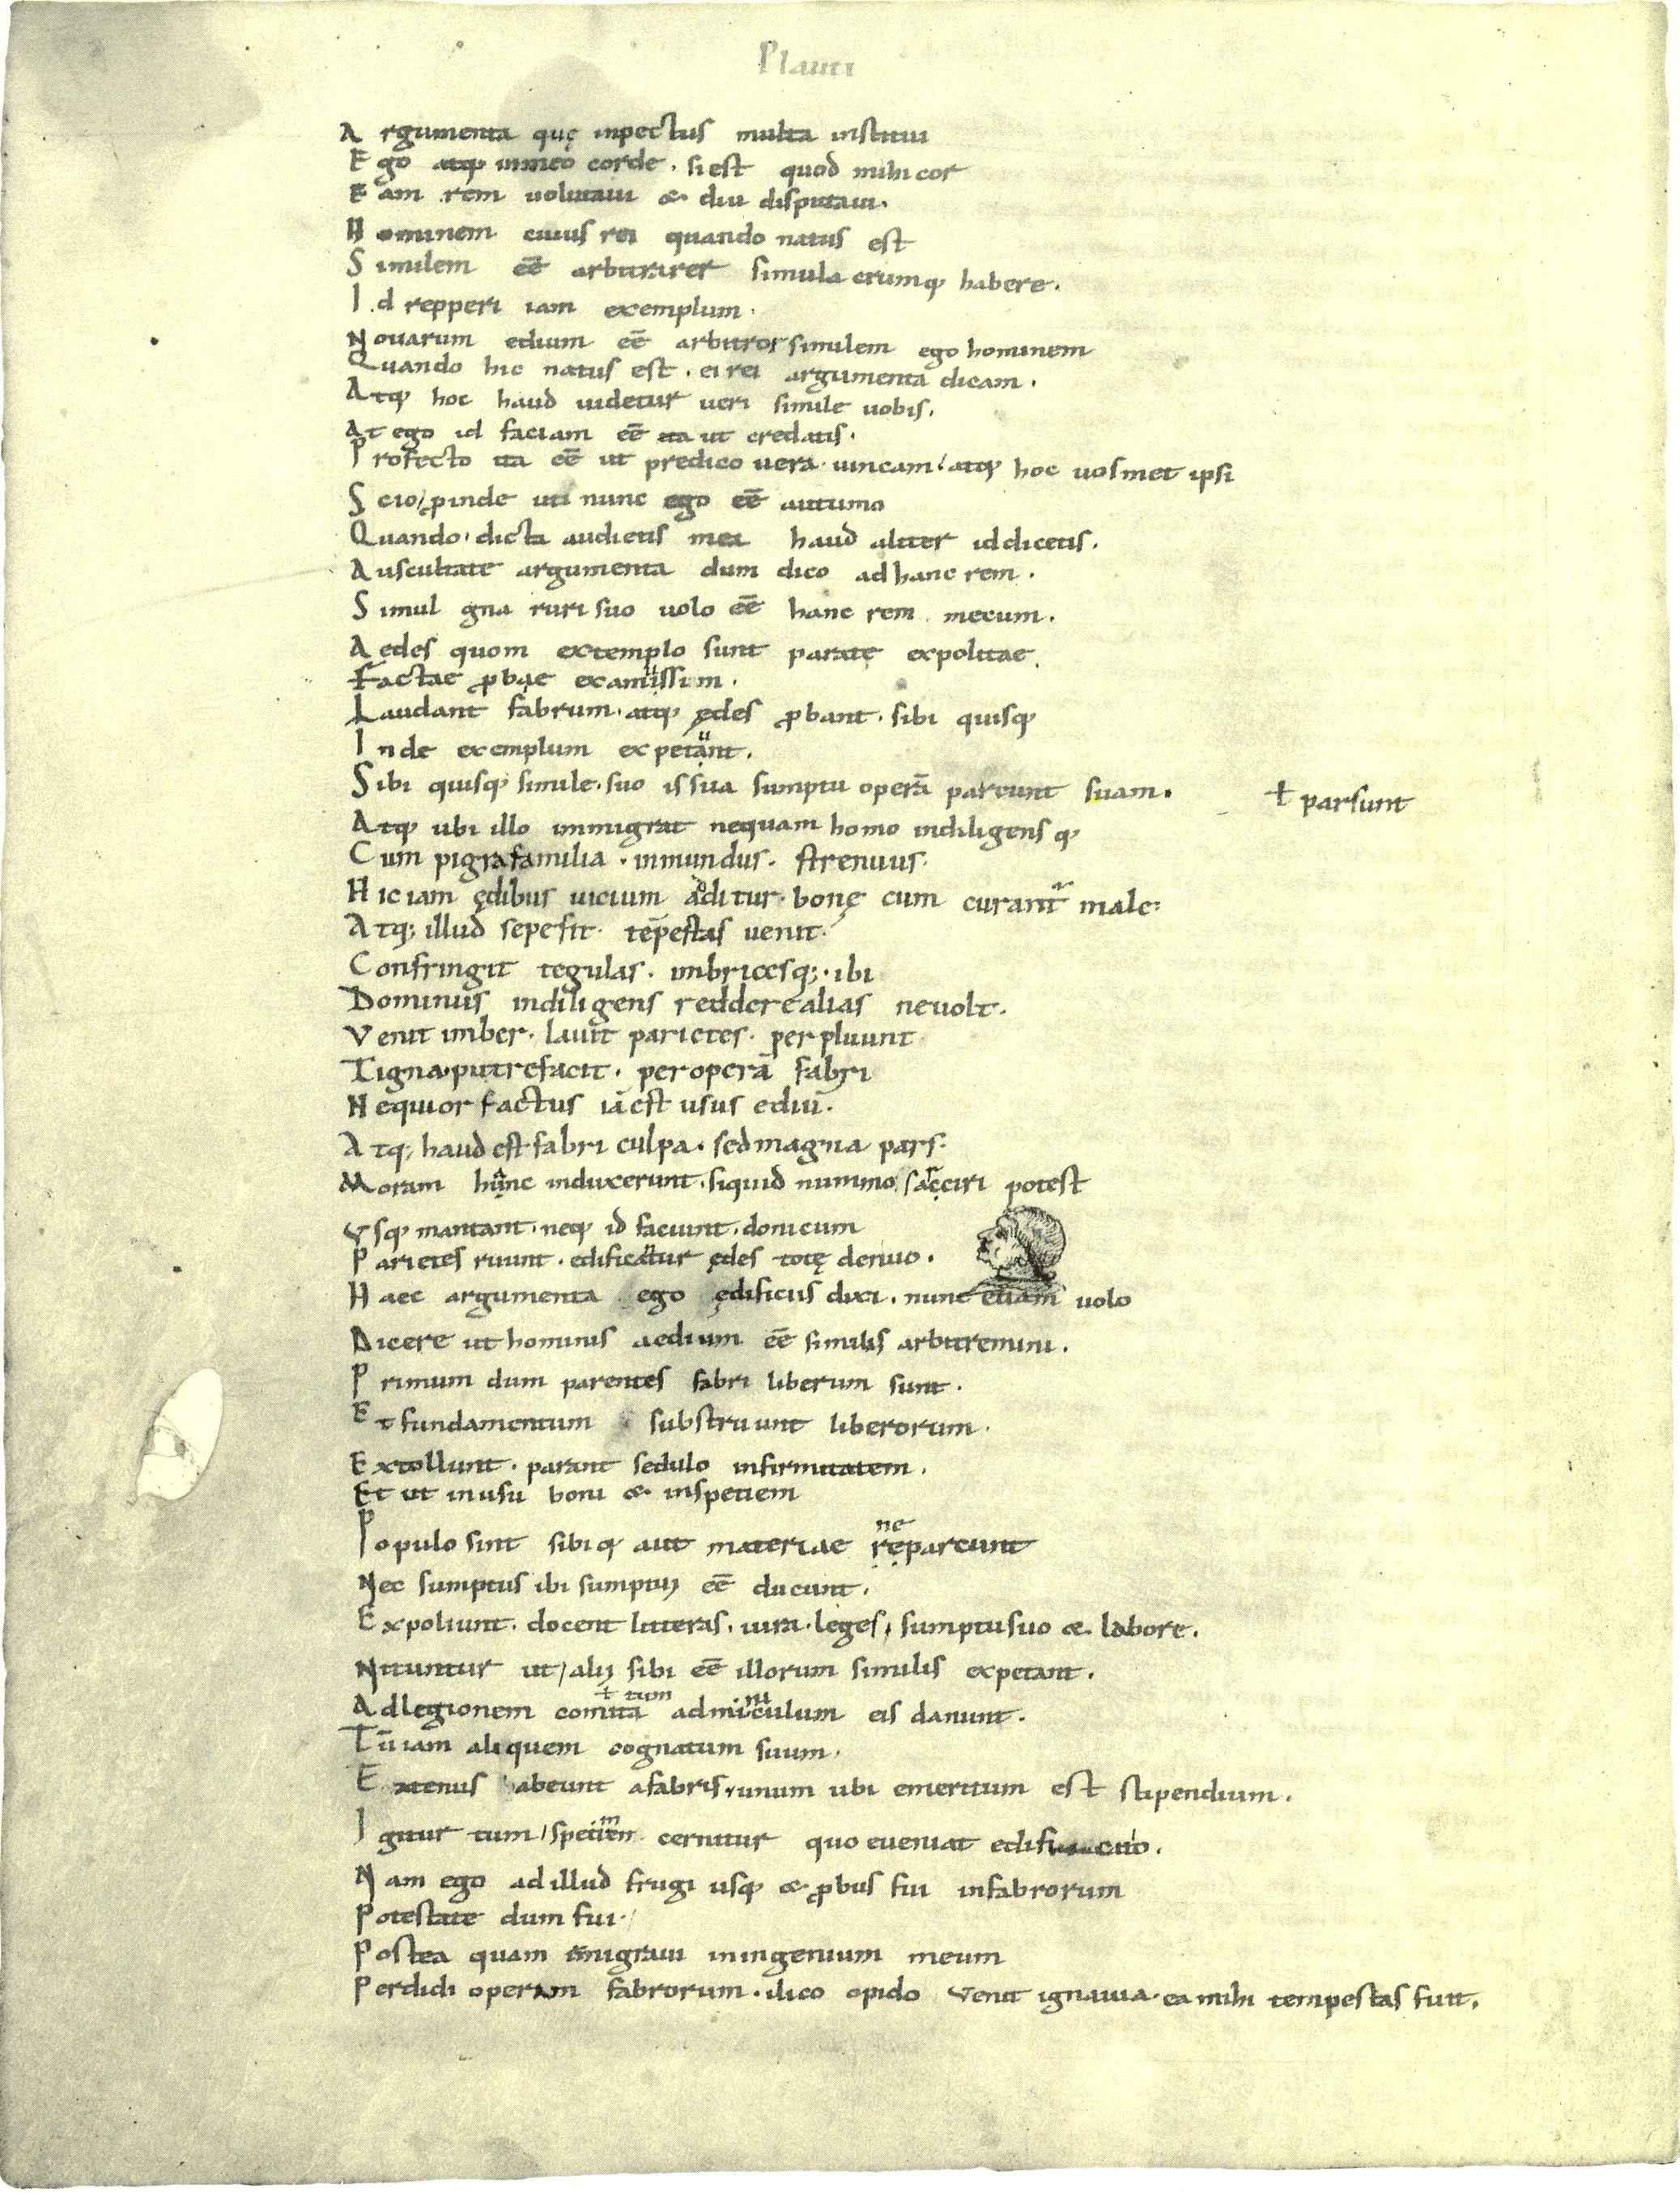 Plauti
Argumenta quę inpectus multa institui
Ego atq; inmeo corde. siest quod mihi cor
Eam rem uolutaui & diu disputaui.
Hominem cuius rei quando natus est
Similem eē arbitrarer simula crumq; habere.
Id repperi iam exemplum.
Nouarum edium eē arbitror similem ego hominem
Quando hic natus est. ei rei argumenta dicam.
Atq; hoc haud uidetur ueri simile uobis.
At ego id faciam eē ita ut credatis.
Profecto ita eē ut predico uera uincam / atq; hoc uosmet ipsi
Scio / ꝓinde uti nunc ego eē autumo
Quando dicta audietis mea haud aliter iddicetis.
Auscultate argumenta dum dico adhanc rem.
Simul gna ruri suo uolo eē hanc rem mecum.
Aedes quom extemplo sunt paratę expolitae
Factae ꝓbąe examussim.
Laudant fabrum. atq; ędes ꝓbant. sibi quisq;
Inde exemplum expetunt.
Sibi quisq; simile. suo issua sumptu operā parcunt suam.
ł parsunt
Atq; ubi illo inmigrat nequam homo indiligens q;
Cum pigrafamilia. inmundus. strenuus.
Hiciam ędibus uicium additur. bonę cum curantr male:
Atq; illud sepefit. tēpestas uenit.
Confringit tegulas. imbricesq;. ibi
Dominus indiligens redderealias neuolt.
Venit imber. lauit parietes. perpluunt
Tigna.putrefacit. peroperā fabri
Nequior factus iāest usus ediū.
Atq; haudest fabri culpa. sedmagna pars.
Moram hanc induxerunt. siquid nummo sarciri potest
Vsq; mantant. neq; id faciunt. donicum
Parietes ruunt. edificantur ędes totę denuo.
Haec argumenta ego ędificiis dixi. nunc etiam uolo
Dicere ut hominis aedium eē similis arbitremini.
Primum dum parentes fabri liberum sunt.
Et fundamentum substruunt liberorum.
Extollunt. parant sedulo infirmitatem.
Et ut inusu boni & inspetiem
ne
Populo sint sibi q; aut materiae reparcunt
Nec sumptus ibi sumptuj eē ducunt.
Expoliunt. docent litteras. iura. leges. sumptusuo & labore.
Nituntur ut / alij sibi eē illorum similis expetant.
ł tum ni
Adlegionem comita adminiculum eis danunt.
Tūiam aliquem cognatum suum.
Extenus abeunt afabris. unum ubi emeritum est stipendium.
Igitur tum / specimen cernitur quo eueniat edificatio.
Nam ego adillud frugi usq; & ꝓbus fui infabrorum
Potestate dum fui.
Postea quam inmigraui iningenium meum
Perdidi operam fabrorum. ilico opido Venit ignauia. ea mihi tempestas fuit.